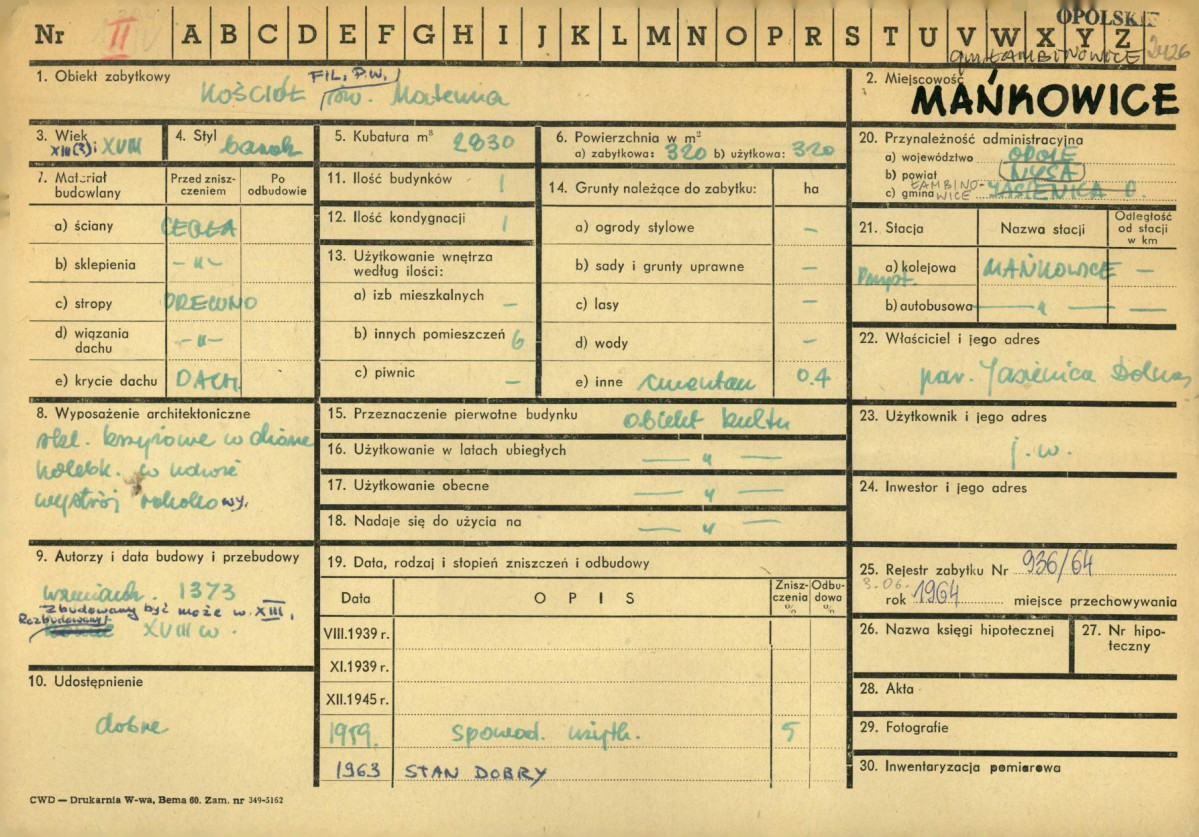 OPOLSKIE
Nr II A B C D E F G H I J K L M N O P R S T U V W X Y Z
gm ŁAMBINOWICE
1. Obiekt zabytkowy
KOŚCIÓŁ FIL. P.W. św. Mateusza
2. Miejscowość
MAŃKOWICE
3. Wiek
XIII(?) i XVIII
4. Styl barok
5. Kubatura m³ 2830
6. Powierzchnia w m²
a) zabytkowa: 320 b) użytkowa: 320
7. Materiał budowlany
Przed zniszczeniem
Po odbudowie
a) ściany CEGŁA
b) sklepienia -"-
c) stropy DREWNO
d) wiązania dachu -"-
e) krycie dachu DACH.
8. Wyposażenie architektoniczne
skl. krzyżowe w
kolebk. w nawie
wystrój rokokowy.
9. Autorzy i data budowy i przebudowy
wzmiank. 1373
Zbudowany być może w. XIII,
Rozbudowany XVIII w.
10. Udostępnienie
dobre
11. Ilość budynków 1
12. Ilość kondygnacji 1
13. Użytkowanie wnętrza według ilości:
a) izb mieszkalnych –
b) innych pomieszczeń 6
c) piwnic –
14. Grunty należące do zabytku: ha
a) ogrody stylowe –
b) sady i grunty uprawne –
c) lasy –
d) wody –
e) inne cmentarz 0.4
15. Przeznaczenie pierwotne budynku obiekt kultu
16. Użytkowanie w latach ubiegłych — " —
17. Użytkowanie obecne — " —
18. Nadaje się do użycia na — " —
19. Data, rodzaj i stopień zniszczeń i odbudowy
Data OPIS Zniszczenia % Odbudowa %
VIII.1939 r.
XI.1939 r.
XII.1945 r.
1959. spowod. użytk. 5
1963 STAN DOBRY
20. Przynależność administracyjna
a) województwo OPOLE
b) powiat NYSA
c) gmina ŁAMBINOWICE JASIENICA D.
21. Stacja Nazwa stacji Odległość od stacji w km
a) kolejowa MAŃKOWICE —
b) autobusowa — " — —
22. Właściciel i jego adres
par. Jasienica Dolna
23. Użytkownik i jego adres
j.w.
24. Inwestor i jego adres
25. Rejestr zabytku Nr 936/64
3.06.
rok 1964 miejsce przechowywania
26. Nazwa księgi hipotecznej
27. Nr hipoteczny
28. Akta
29. Fotografie
30. Inwentaryzacja pomiarowa
CWD — Drukarnia W-wa, Bema 60. Zam. nr 349-5162